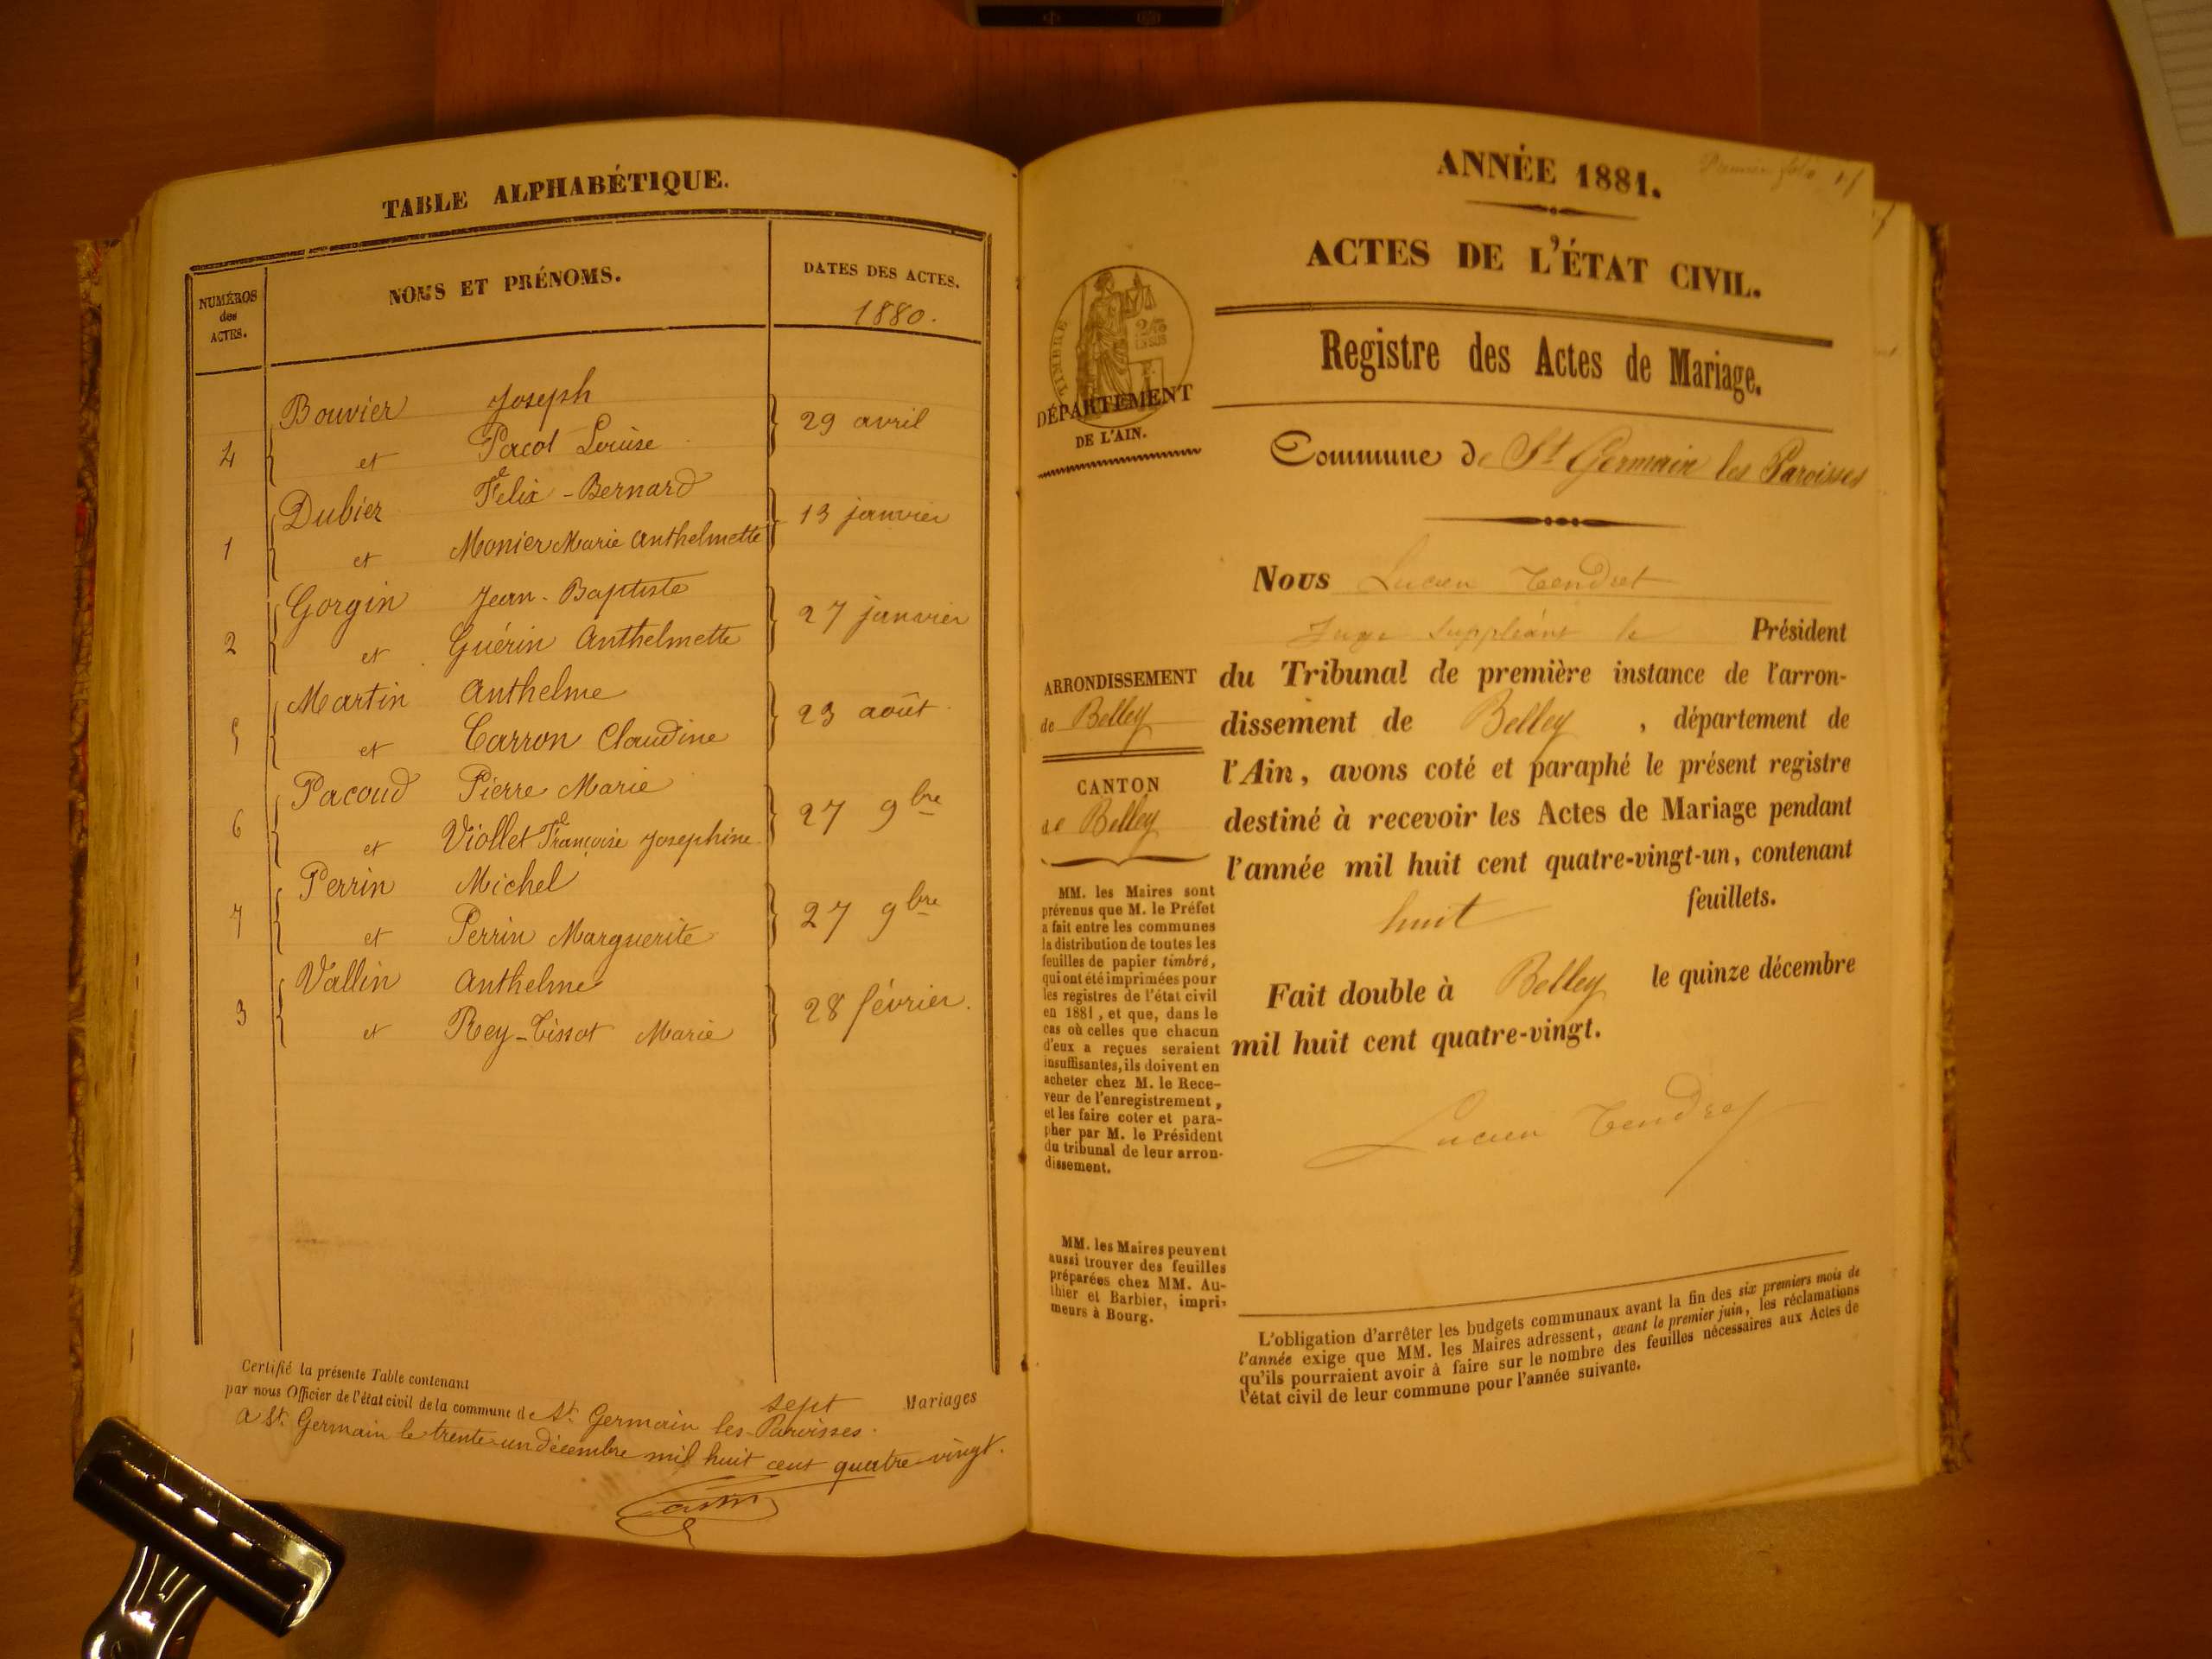 TABLE ALPHABÉTIQUE.
NUMÉROS
des
ACTES.
NOMS ET PRÉNOMS.
DATES DES ACTES.
1880.
Bouvier Joseph
4 et Pacot Louise 29 avril
Dubier Félix-Bernard
1 et Monier Marie Anthelmette 13 janvier
Gorgin Jean-Baptiste
2 et Guérin Anthelmette 27 janvier
Martin Anthelme
5 et Carron Claudine 23 août
Pacoud Pierre Marie
6 et Viollet Françoise Josephine 27 9bre
Perrin Michel
7 et Perrin Marguerite 27 9bre
Vallin Anthelme
3 et Rey-Tissot Marie 28 février.
Certifié la présente Table contenant sept Mariages
par nous Officier de l'état civil de la commune de St. Germain les-Paroisses.
A St. Germain le trente-un décembre mil huit cent quatre-vingt.
ANNÉE 1881.
ACTES DE L'ÉTAT CIVIL.
Registre des Actes de Mariage.
TIMBRE
DÉPARTEMENT
DE L'AIN.
Commune de St Germain les Paroisses
Nous Lucien Tendret
Juge suppléant le Président
du Tribunal de première instance de l'arron-
dissement de Belley, département de
l'Ain, avons coté et paraphé le présent registre
destiné à recevoir les Actes de Mariage pendant
l'année mil huit cent quatre-vingt-un, contenant
huit feuillets.
Fait double à Belley le quinze décembre
mil huit cent quatre-vingt.
Lucien Tendret
ARRONDISSEMENT
de Belley
CANTON
de Belley
MM. les Maires sont
prévenus que M. le Préfet
a fait entre les communes
la distribution de toutes les
feuilles de papier timbré,
qui ont été imprimées pour
les registres de l'état civil
en 1881, et que, dans le
cas où celles que chacun
d'eux a reçues seraient
insuffisantes, ils doivent en
acheter chez M. le Rece-
veur de l'enregistrement,
et les faire coter et para-
pher par M. le Président
du tribunal de leur arron-
dissement.
MM. les Maires peuvent
aussi trouver des feuilles
préparées chez MM. Au-
thier et Barbier, impri-
meurs à Bourg.
L'obligation d'arrêter les budgets communaux avant la fin des six premiers mois de
l'année exige que MM. les Maires adressent, avant le premier juin, les réclamations
qu'ils pourraient avoir à faire sur le nombre des feuilles nécessaires aux Actes de
l'état civil de leur commune pour l'année suivante.